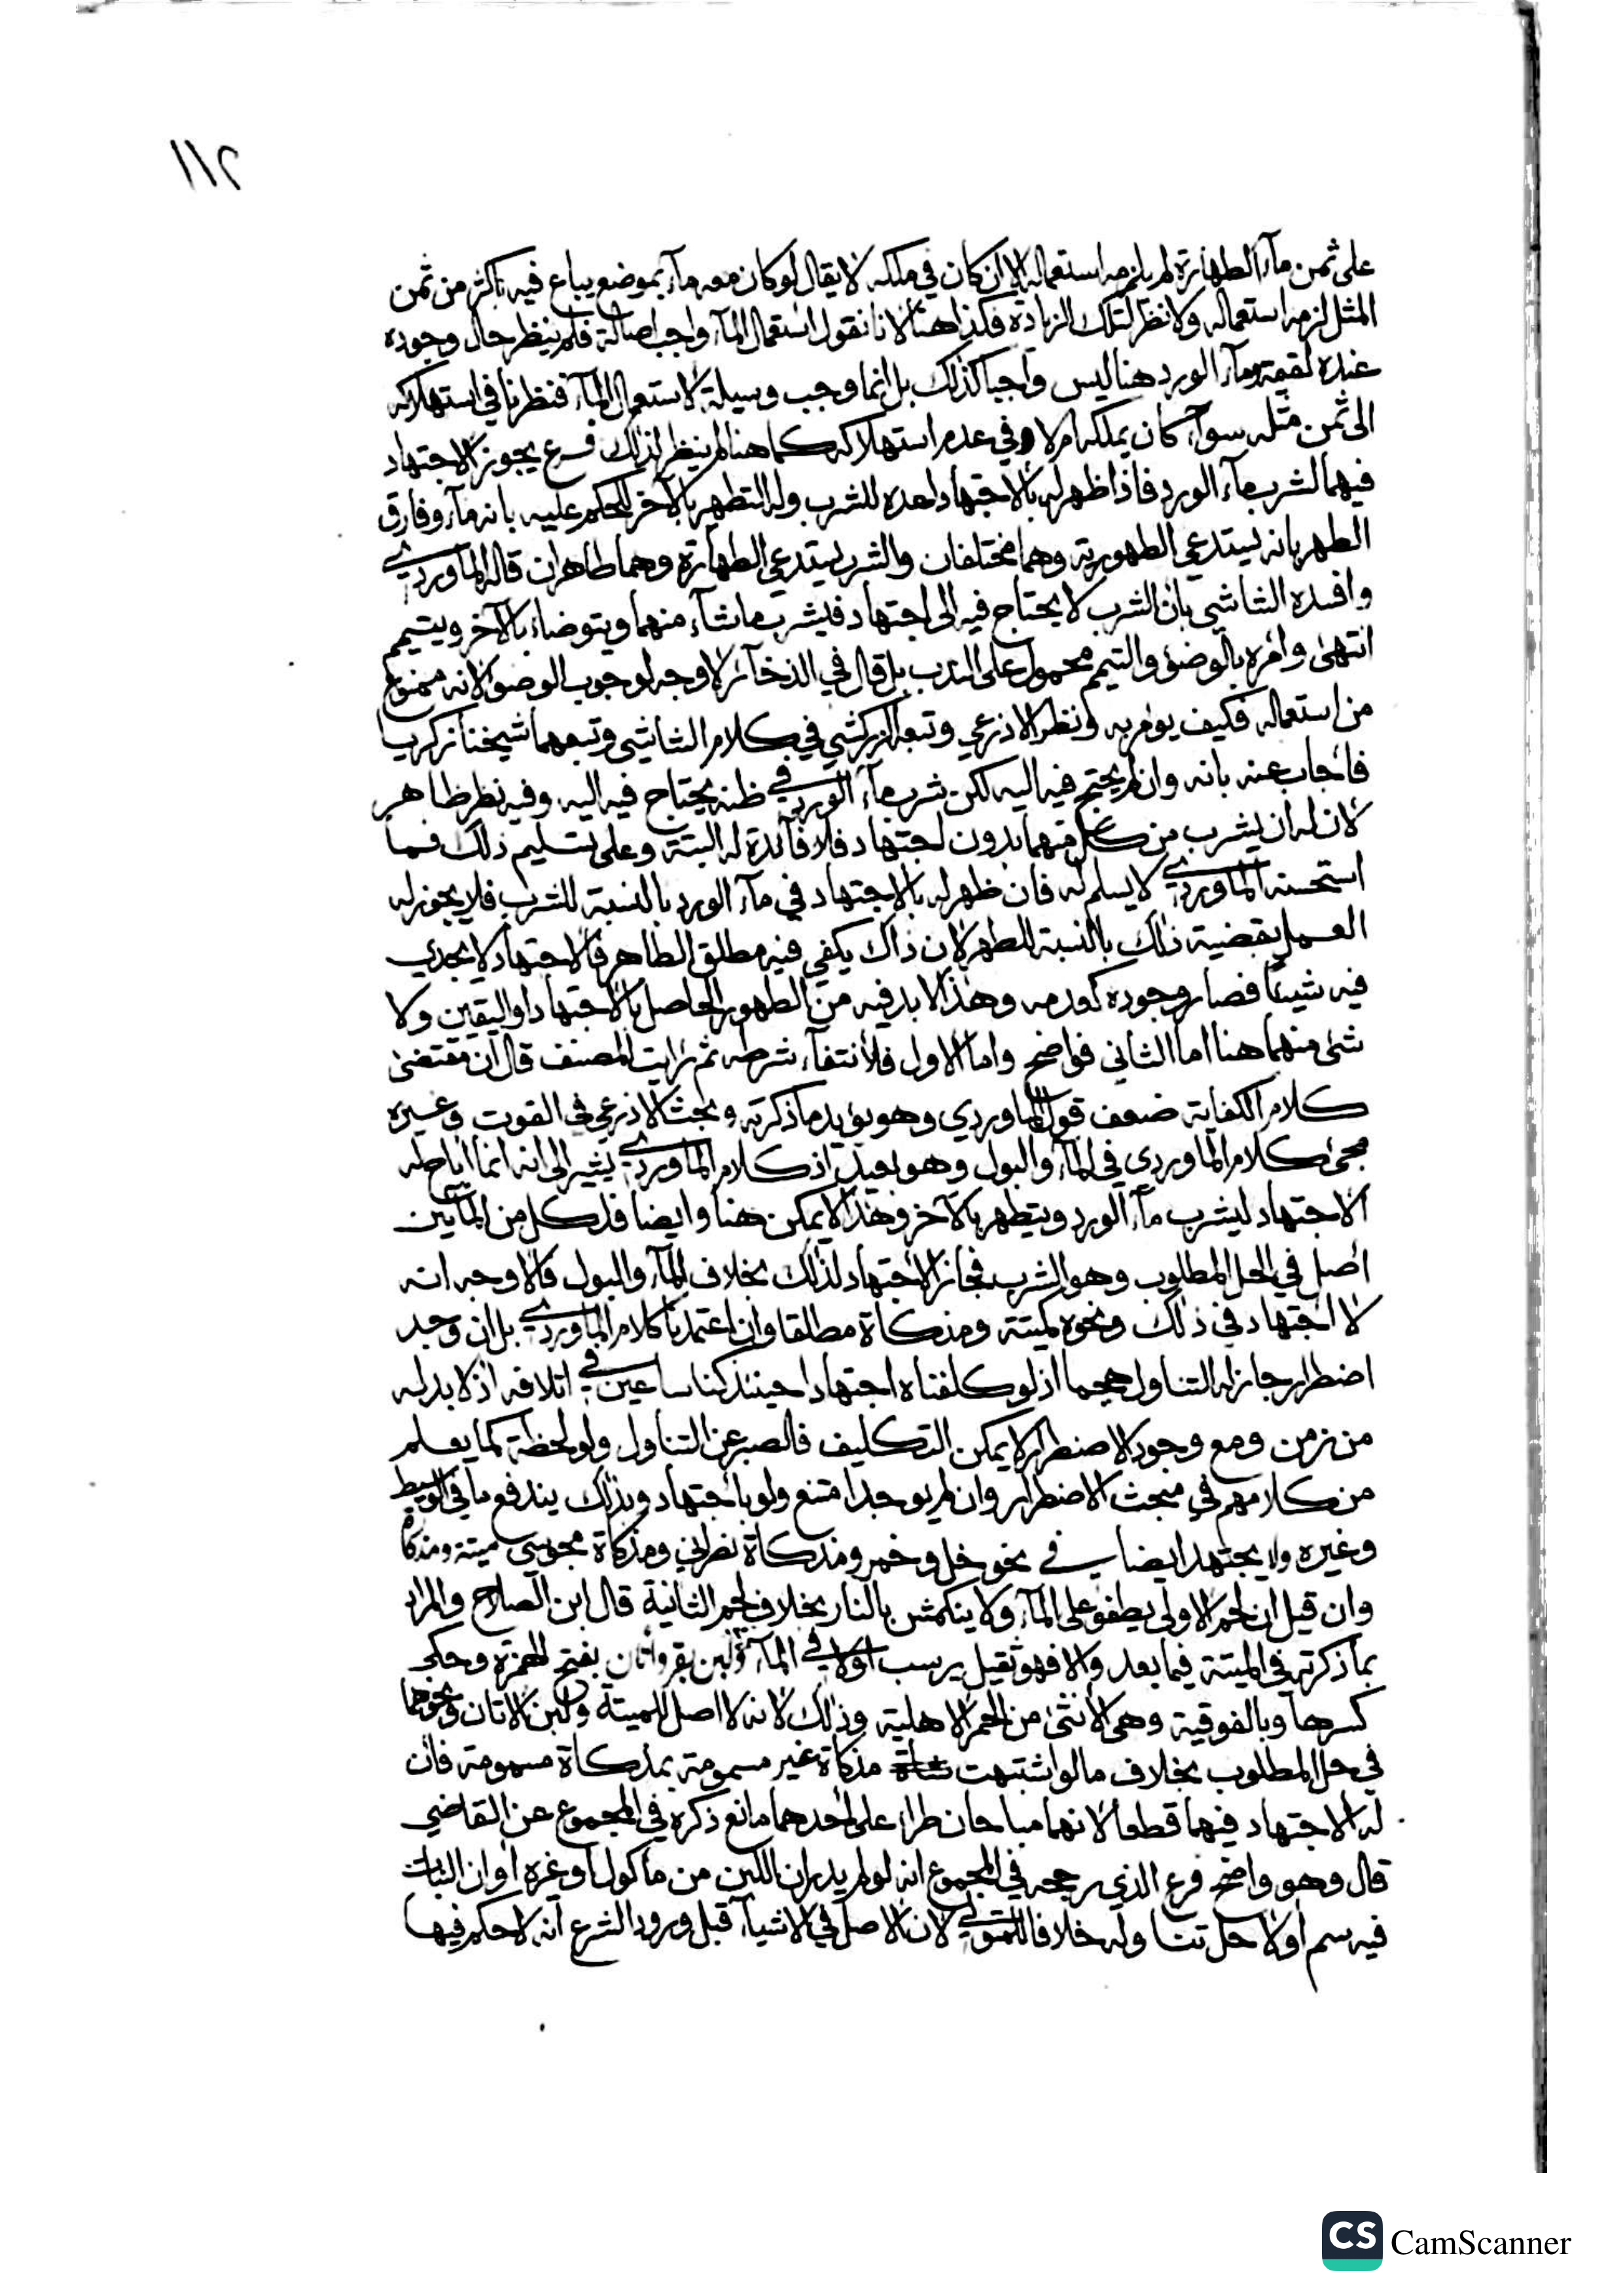 ١١٢
على ثمن ماء الطهارة لم يلزمه استعماله الا ان كان في ملكه لا يقال لو كان معه ماء بموضع يباع فيه باكثر من ثمن
المثل لزمه استعماله ولا نظر لتلك الزيادة فكذا هنا لانا نقول استعمال الماء واجب اصالة فلم ينظر حال وجوده
عنده لقيمته وماء الورد هنا ليس واجبا كذلك بل انما وجب وسيلة لاستعمال الماء فنظرنا في استهلاكه
الى ثمن مثله سواء كان يملكه ام لا وفي عدم استهلاكه كما هنا لم ينظر لذلك فرع يجوز الاجتهاد
فيهما لشرب ماء الورد فاذا ظهر له بالاجتهاد اعده للشرب وله التطهر بالآخر للحكم عليه بانه ماء وفارق
الطهر بانه يستدعي الطهورية وهما مختلفان والشرب يستدعي الطهارة وهما طاهران قاله الماوردي
وافسده الشاشي بان الشرب لا يحتاج فيه الى اجتهاد فيشرب ما شاء منهما ويتوضاء بالآخر ويتيمم
انتهى وامره بالوضوء والتيمم محمول على الندب بل قال في الذخائر لا وجه لوجوب الوضوء لانه ممنوع
من استعماله فكيف يومر به ونظر الاذرعي وتبعه الزركشي في كلام الشاشي وتبعهما شيخنا زكريا
فاجاب عنه بانه وان لم يحتج فيه اليه لكن شرب ماء الورد في ظنه يحتاج فيه اليه وفيه نظر ظاهر
لان له ان يشرب من كل منهما بدون اجتهاد فلا فائدة له البتة وعلى تسليم ذلك فما
استحسنه الماوردي لا يسلم له فان ظهر له بالاجتهاد في ماء الورد بالنسبة للشرب فلا يجوز له
العمل بقضية ذلك بالنسبة للطهر لان ذاك يكفي فيه مطلق الطاهر فالاجتهاد لا يجدي
فيه شيئا فصار وجوده كعدمه وهذا لا بد فيه من الطهور الحاصل بالاجتهاد او اليقين ولا
شئ منهما هنا اما الثاني فواضح واما الاول فلانتفاء شرطه ثم رايت المصنف قال ان مقتضى
كلام الكفاية ضعف قول الماوردي وهو يؤيد ما ذكرته وبحث الاذرعي في القوت وغيره
مجئ كلام الماوردي في الماء والبول وهو بعيد اذ كلام الماوردي يشير الى انه انما اباح له
الاجتهاد ليشرب ماء الورد ويتطهر بالآخر وهذا لا يمكن هنا وايضا فلكل من المائين
اصل في الحل المطلوب وهو الشرب فجاز الاجتهاد لذلك بخلاف الماء والبول فالاوجه انه
لا اجتهاد في ذلك ونحوه كميتة ومذكاة مطلقا وان اعتمدنا كلام الماوردي بل ان وجد
اضطرار جاز له التناول هجما اذ لو كلفناه اجتهادا حينئذ كنا ساعين في اتلافه اذ لا بد له
من زمن ومع وجود الاضطرار لا يمكن التكليف فالصبر عن التناول ولو لحظة كما يعلم
من كلامهم في مبحث الاضطرار وان لم يوجد امتنع ولو باجتهاد وبذلك يندفع ما في الوسيط
وغيره ولا يجتهد ايضا في نحو خل وخمر ومذكاة نصراني ومذكاة مجوسي وميتة ومذكاة
وان قيل ان لحم الاولى يطفو على الماء ولا ينكمش بالنار بخلاف لحم الثانية قال ابن الصلاح والمراد
بما ذكرته في الميتة فيما بعد والا فهو ثقيل يرسب اولا في الماء ولبن بقر واتان بفتح الهمزة وحكي
كسرها وبالفوقية وهي الانثى من الحمر الاهلية وذلك لانه لا اصل للميتة ولبن الاتان ونحوهما
في حل المطلوب بخلاف ما لو اشتبهت مذكاة غير مسمومة بمذكاة مسمومة فان
له الاجتهاد فيهما قطعا لانهما مباحان طراء على احدهما مانع ذكره في المجموع عن القاضي
قال وهو واضح فرع الذي رجحه في المجموع انه لو لم يدر ان اللبن من ماكول او غيره او ان النبات
فيه سم اولا حل تناوله خلافا للمتولي لان الاصل في الاشياء قبل ورود الشرع انه لا حكم فيها
CS CamScanner